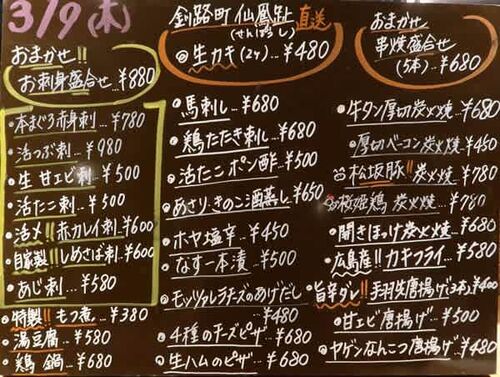 3/9(木)
おまかせ!!
お刺身盛合せ…¥880
本まぐろ赤身刺…¥780
活つぶ刺…¥980
生甘エビ刺…¥500
活たこ刺…¥500
活〆!!赤カレイ刺…¥600
自家製!!しめさば刺…¥600
あじ刺…¥580
特製!!もつ煮…¥380
湯豆腐…¥580
鶏鍋…¥680
釧路町 仙鳳趾 直送
(せんぽうし)
生カキ(2ケ)…¥480
馬刺し…¥680
鶏たたき刺し…¥680
活たこポン酢…¥500
あさりきのこ酒蒸し…¥650
ホヤ塩辛…¥450
なす一本漬…¥500
モッツァレラチーズのあげだし
…¥480
4種のチーズピザ…¥680
生ハムのピザ…¥680
おまかせ
串焼盛合せ
(5本)…¥680
牛タン厚切炭火焼…¥680
厚切ベーコン炭火焼…¥450
松坂豚!!炭火焼…¥780
桜姫鶏 炭火焼…¥780
開きほっけ炭火焼…¥680
広島産!!カキフライ…¥580
旨辛ダレ!!手羽先唐揚げ3本¥400
甘エビ唐揚げ…¥500
ヤゲンなんこつ唐揚げ…¥480